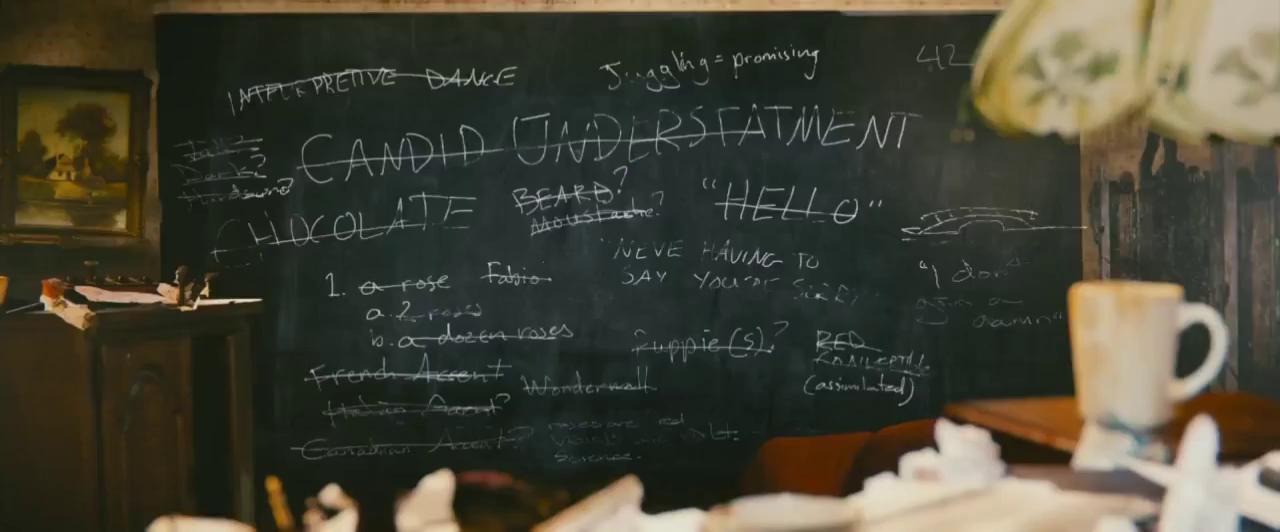 INTERPRETIVE DANCE
Juggling = promising
42
Tall?
Dark?
Handsome?
CANDID UNDERSTATMENT
CHOCOLATE
BEARD?
Moustache?
"HELLO"
"NEVE HAVING TO
SAY YOU'RE
1. a rose Fabio
a. 2 roses
b. a dozen roses
"I don't
a damn"
Puppie(s)?
RED
(assimilated)
French Accent
Wonderwall
Italian Accent?
Canadian Accent?
roses are red
violets are
Science.